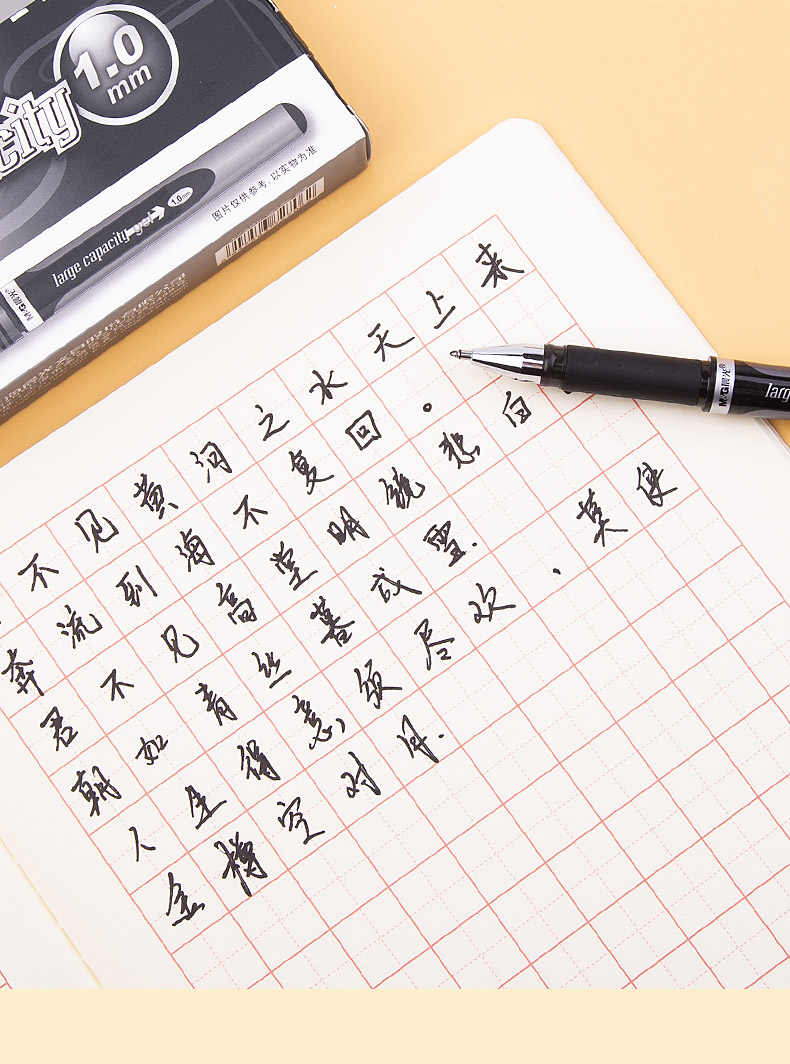 1.0
mm
city
1.0mm
large capacity gel
M&G晨光
图片仅供参考,以实物为准
M&G晨光®
larg
不见黄河之水天上来
奔流到海不复回。
君不见高堂明镜悲白
朝如青丝暮成雪.
人生得意须尽欢,莫使
金樽空对月.